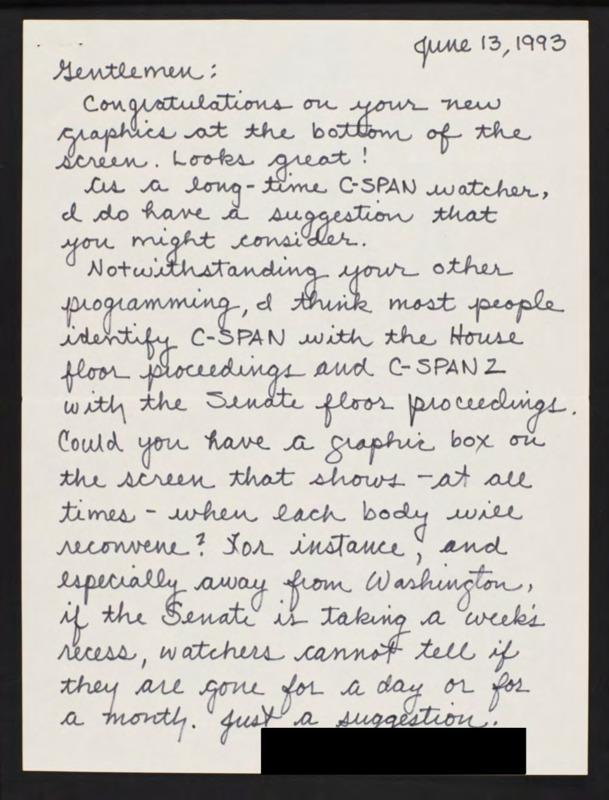 June 13, 1993
Gentlemen:
Congratulations on your new
graphics at the bottom of the
screen. Looks great!
As a long-time C-SPAN watcher,
I do have a suggestion that
you might consider.
Notwithstanding your other
programming, I think most people
identify C-SPAN with the House
floor proceedings and C-SPAN 2
with the Senate floor proceedings.
Could you have a graphic box on
the screen that shows - at all
times - when each body will
reconvene? For instance, and
especially away from Washington,
if the Senate is taking a week's
recess, watchers cannot tell if
they are gone for a day or for
a month. Just a suggestion.